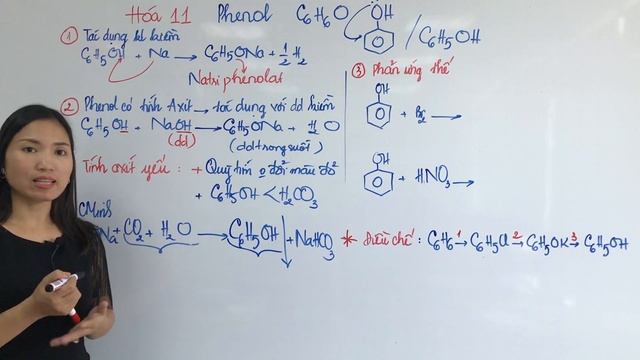 Hoá 11 Phenol C6H6O OH / C6H5OH
① Tác dụng kl kiềm
C6H5OH + Na → C6H5ONa + 1/2 H2
Natri phenolat
② Phenol có tính Axit → tác dụng với dd kiềm
C6H5OH + NaOH → C6H5ONa + H2O
(dd) (dd trong suốt)
Tính axit yếu : + Quỳ tím o đổi màu đỏ
+ C6H5OH < H2CO3
CMinh
Na + CO2 + H2O → C6H5OH ↓ + NaHCO3
③ Phản ứng thế
OH
+ Br2 →
OH
+ HNO3 →
* Điều chế : C6H6 →1 C6H5Cl →2 C6H5OK →3 C6H5OH